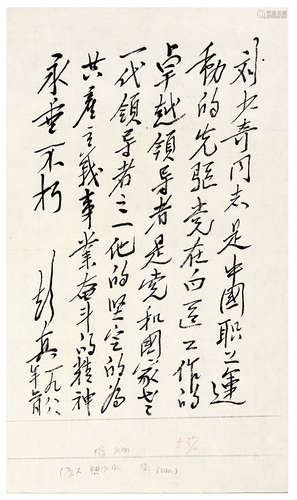 刘少奇同志是中國职工運
動的先驱党在白區工作的
卓越领导者是党和國家老
一代領导者之一他的坚定的为
共產主義事業奋斗的精神
永垂不朽
彭真一九八八
年